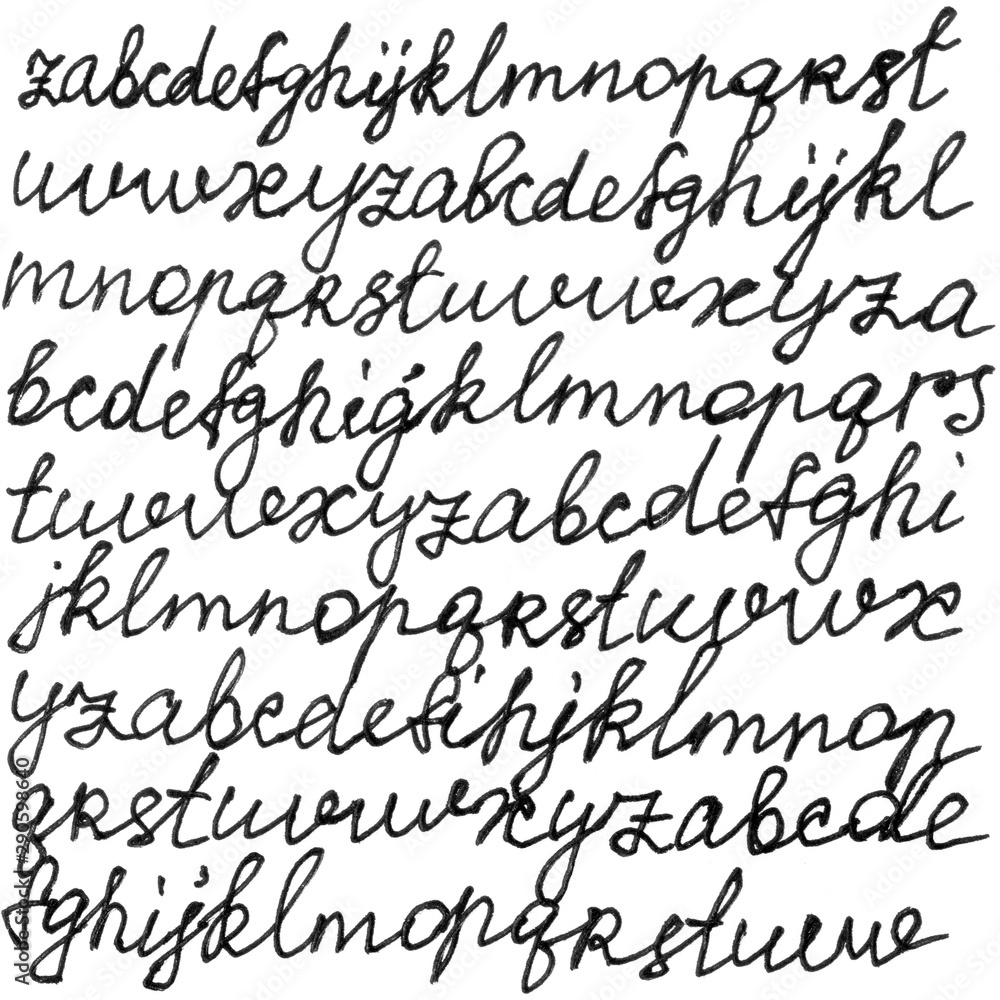 zabcdefghijklmnopqrst
uvwxyzabcdefghijkl
mnopqrstuvwxyza
bcdefghijklmnopqrs
tuvwxyzabcdefghi
jklmnopqrstuvwx
yzabcdefihjklmnop
qrstuvwxyzabcde
fghijklmopqrstuvw
Adobe Stock | #290598640